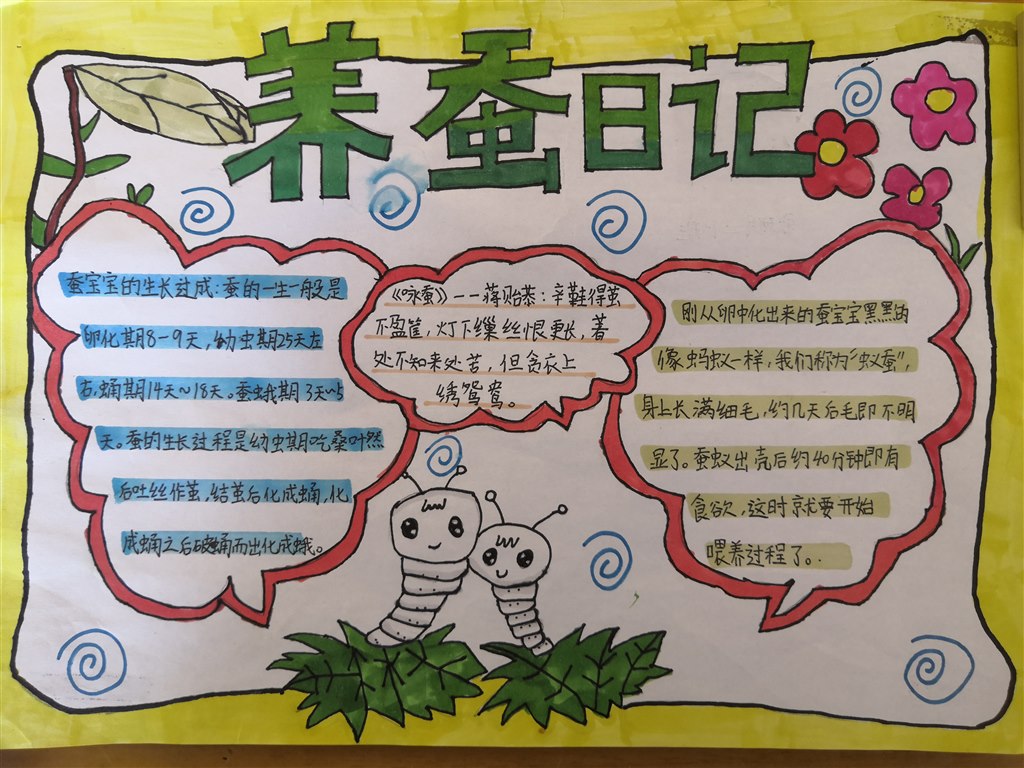 养蚕日记
蚕宝宝的生长过成:蚕的一生一般是
卵化期8-9天,幼虫期25天左
右,蛹期14天~18天。蚕蛾期3天~5
天。蚕的生长过程是幼虫期吃桑叶然
后吐丝作茧,结茧后化成蛹,化
成蛹之后破蛹而出化成蛾。
《咏蚕》--蒋贻恭:辛鞋得茧
不盈筐,灯下缫丝恨更长,著
处不知来处苦,但贪衣上
绣鸳鸯。
刚从卵中化出来的蚕宝宝黑黑的
像蚂蚁一样,我们称为“蚁蚕”,
身上长满细毛,约几天后毛即不明
显了。蚕蚁出壳后约40分钟即有
食欲,这时就要开始
喂养过程了。..